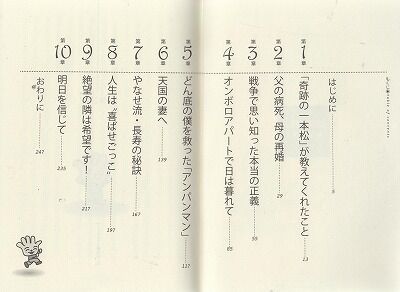 はじめに 5
第1章 「奇跡の一本松」が教えてくれたこと 13
第2章 父の病死、母の再婚 29
第3章 戦争で思い知った本当の正義 55
第4章 オンボロアパートで日は暮れて 85
第5章 どん底の僕を救った「アンパンマン」 117
第6章 天国の妻へ 139
第7章 やなせ流・長寿の秘訣 167
第8章 人生は“喜ばせごっこ” 197
第9章 絶望の隣は希望です! 217
第10章 明日を信じて 235
おわりに 247